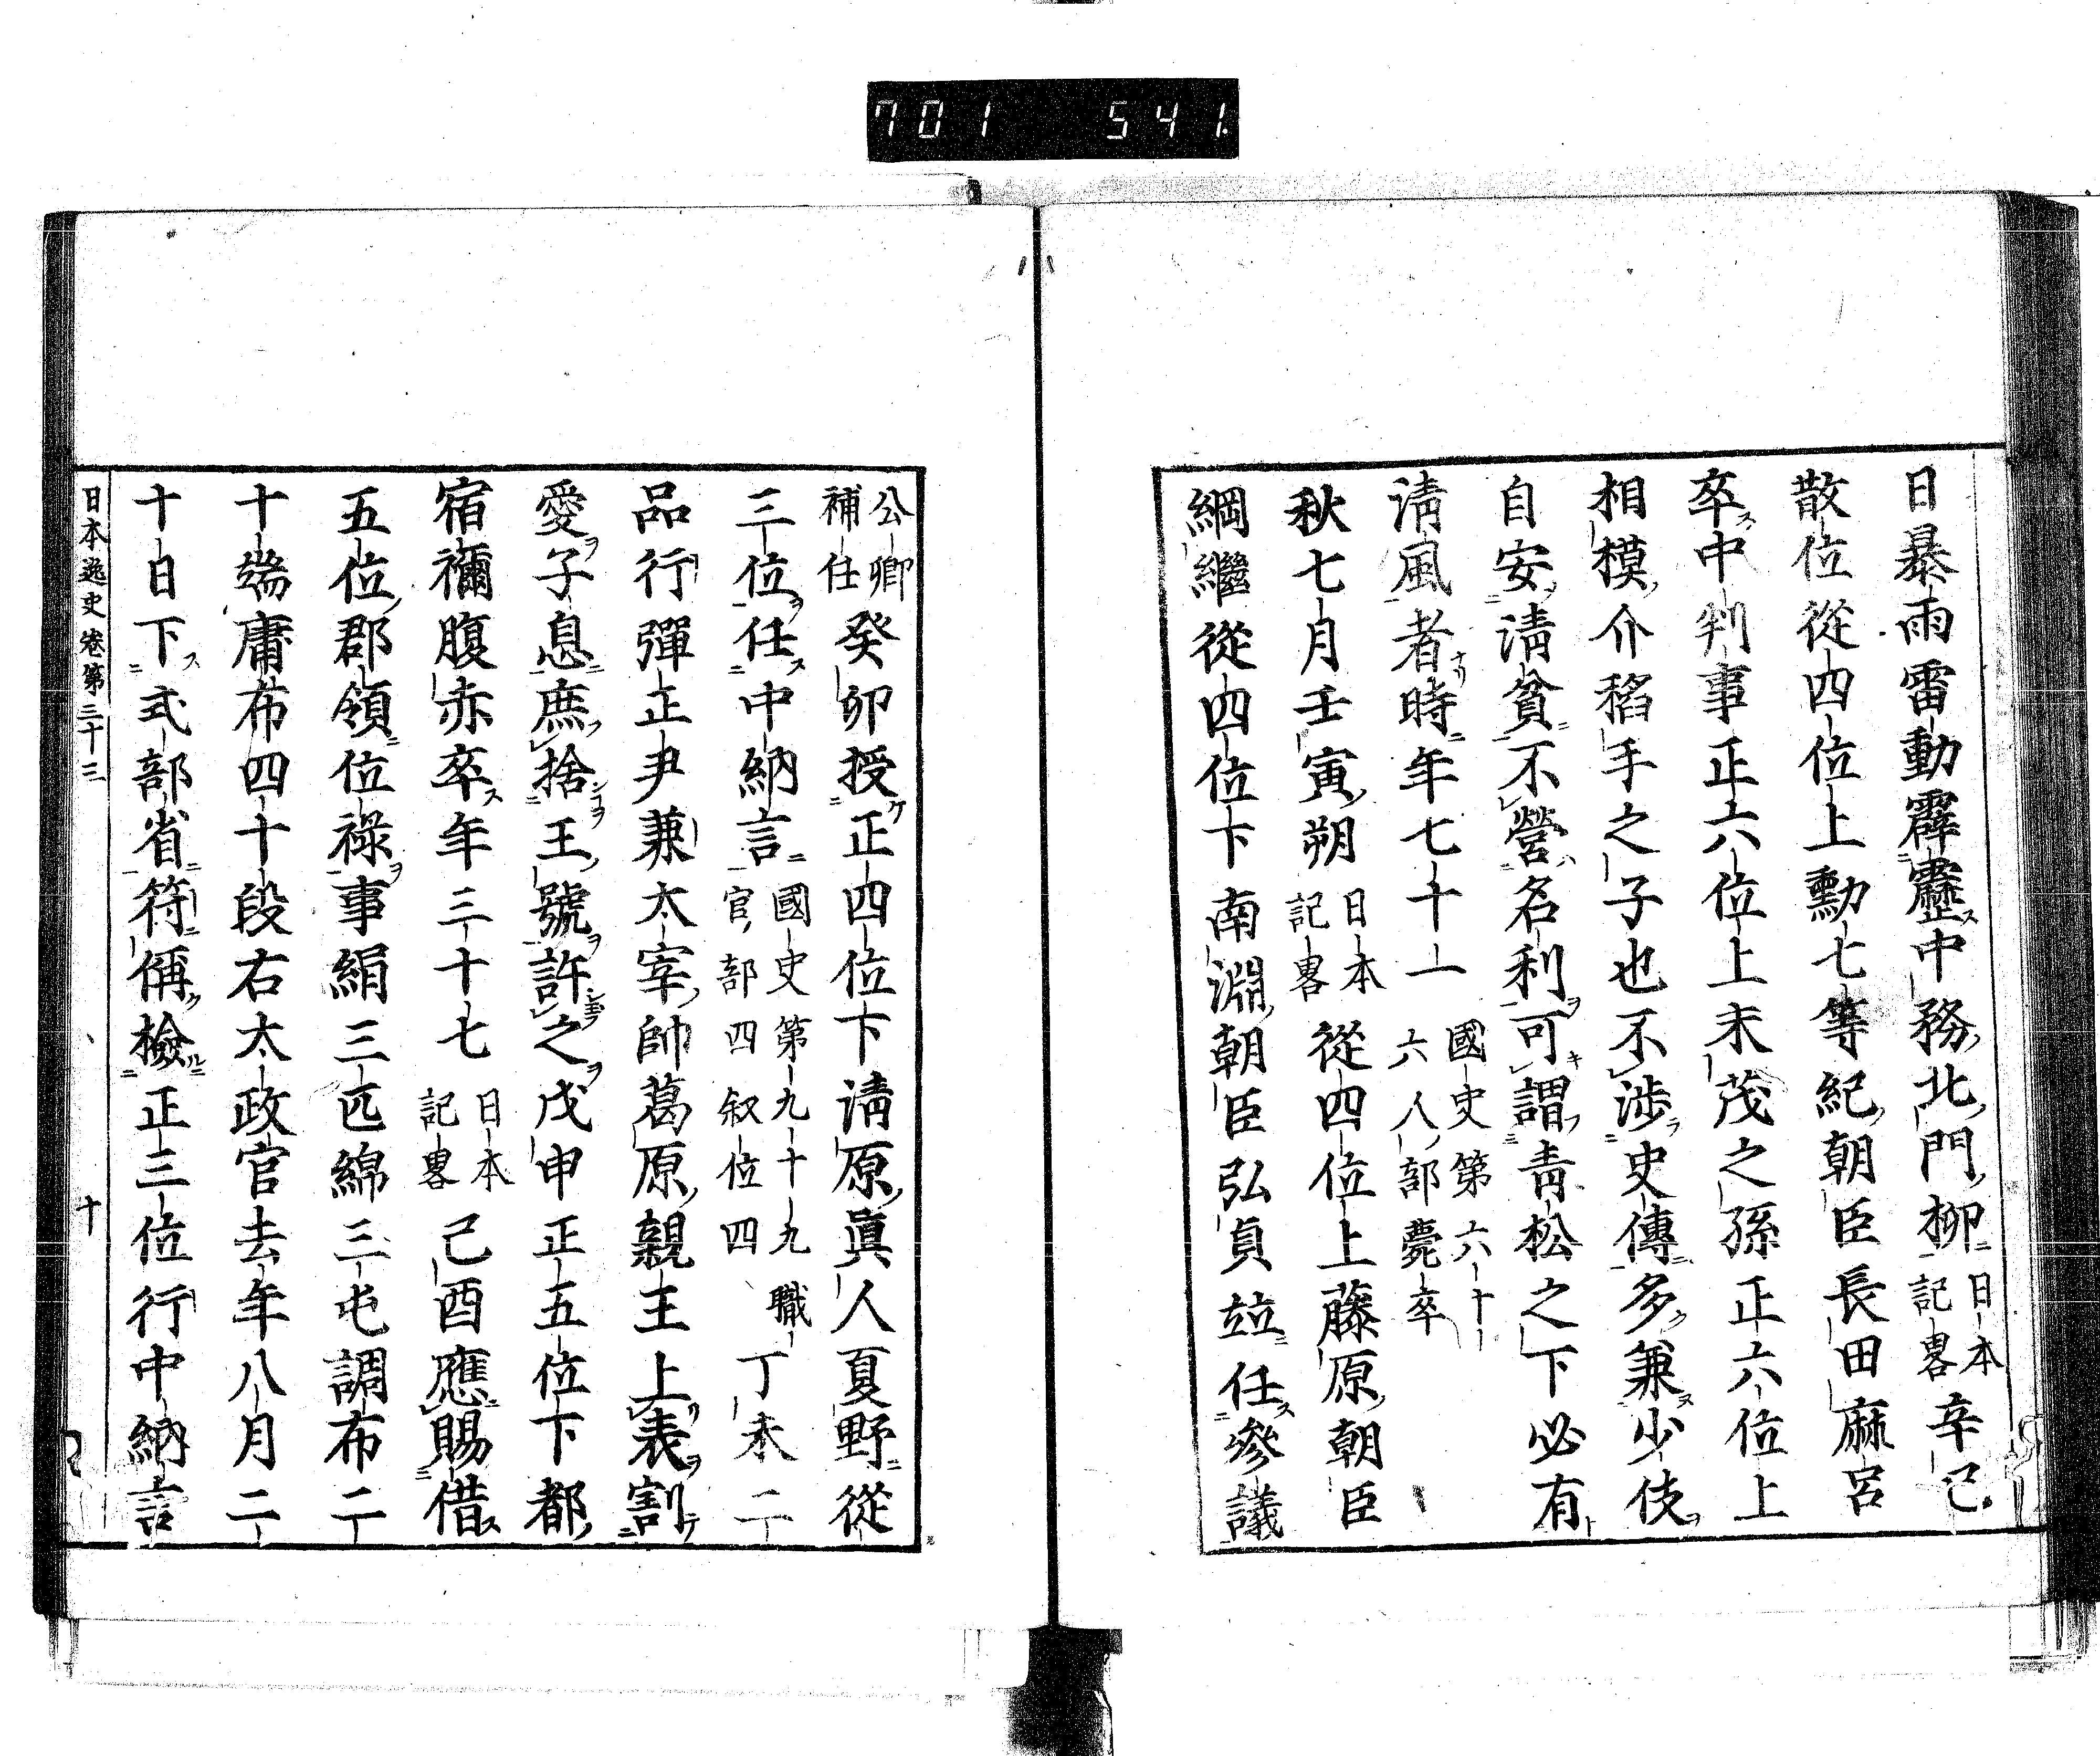 701 541
日暴雨雷動霹靂中務北門柳日本記畧辛已
散位從四位上勳七等紀朝臣長田麻呂
卒中判事正六位上末茂之孫正六位上
相模介稻手之子也不涉史傳多兼少伎
自安淸貧不營名利可謂靑松之下必有
淸風者時年七十一國史第六十六人部薨卒
秋七月壬寅朔日本記畧從四位上藤原朝臣
綱繼從四位下南淵朝臣弘貞竝任參議
公卿補任癸卯授正四位下淸原眞人夏野從
三位任中納言國史第九十九職官部四叙位四丁未二
品行彈正尹兼太宰帥葛原親王上表割
愛子息庶捨王號許之戊申正五位下都
宿禰腹赤卒年三十七日本記畧己酉應賜借
五位郡領位祿事絹三匹綿三屯調布二
十端庸布四十段右太政官去年八月二
十日下式部省符偁檢正三位行中納言
日本逸史卷第三十三 十